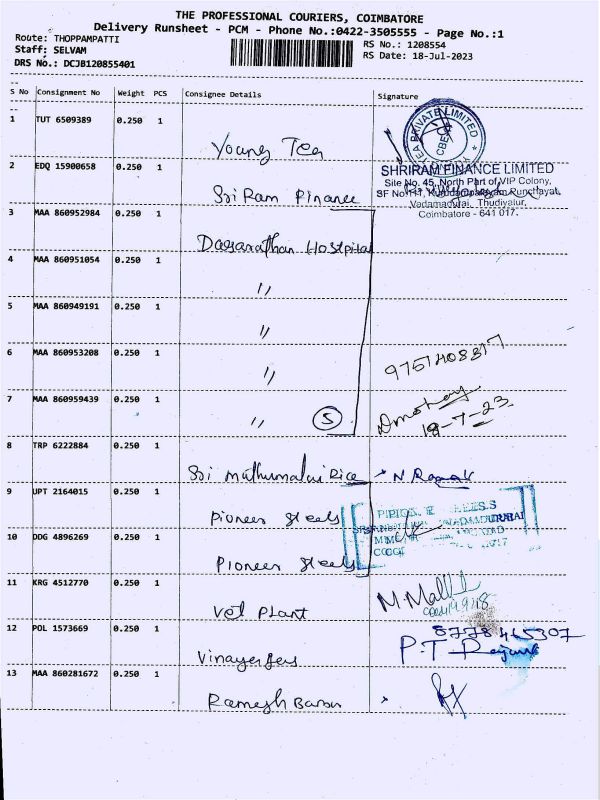 THE PROFESSIONAL COURIERS, COIMBATORE
Delivery Runsheet - PCM - Phone No.:0422-3505555 - Page No.:1
Route: THOPPAMPATTI
RS No.: 1208554
Staff: SELVAM
RS Date: 18-Jul-2023
DRS No.: DCJB120855401
S No Consignment No Weight PCS Consignee Details Signature
1 TUT 6509389 0.250 1
Young Tea
EA PRIVATE LIMITED
2 EDQ 15900658 0.250 1
Sri Ram Finance
SHRIRAM FINANCE LIMITED
Site No. 45, North Part of VIP Colony,
Vadamadurai, Thudiyalur,
Coimbatore - 641 017.
3 MAA 860952984 0.250 1
Dasarathan Hospital
4 MAA 860951054 0.250 1
"
5 MAA 860949191 0.250 1
"
6 MAA 860953208 0.250 1
"
7 MAA 860959439 0.250 1
" 5
18-7-23
8 TRP 6222884 0.250 1
Sri Muthumalai Rice
9 UPT 2164015 0.250 1
Pioneer Steels
10 DDG 4896269 0.250 1
Pioneer Steels
11 KRG 4512770 0.250 1
Vet Plant
12 POL 1573669 0.250 1
8778465307
P.T
13 MAA 860281672 0.250 1
Ramesh Babu